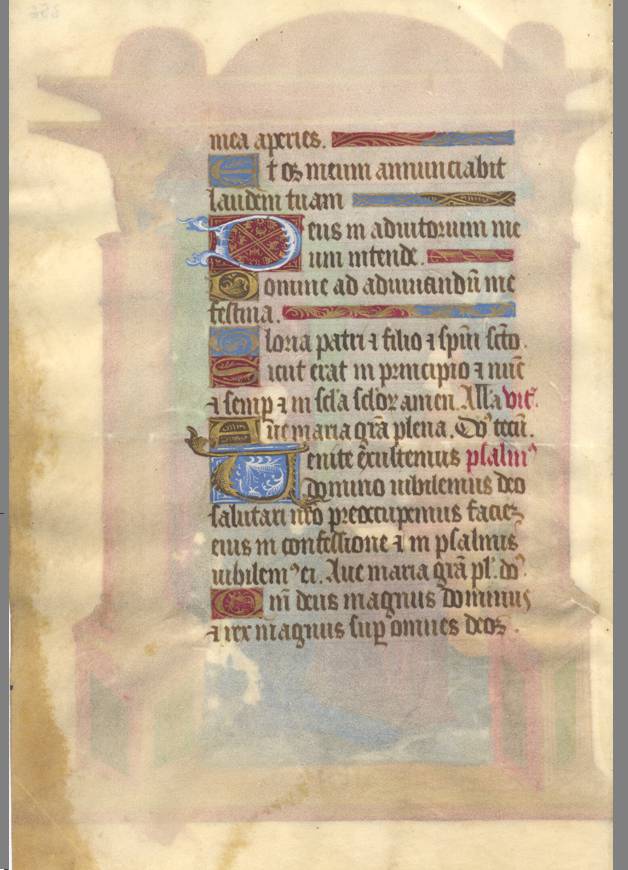 mea aperies.
Et os meum annunciabit
laudem tuam
Deus in adiutorium me
um intende.
Domine ad adiuuandū me
festina.
Gloria patri ⁊ filio ⁊ spūi scō.
Sicut erat in principio ⁊ nūc
⁊ semp ⁊ in scl̄a sclōꝝ amen. Alla vit̄.
Aue maria grā plena. Do᷒ tecū.
Uenite exultemus psalm᷒
domino iubilemus deo
salutari nr̄o preoccupemus facieꝫ
eius in confessione ⁊ in psalmis
iubilem᷒ ei. Aue maria grā pl. do᷒
Qm̄ deus magnus dominus
⁊ rex magnus sup omnes deos.